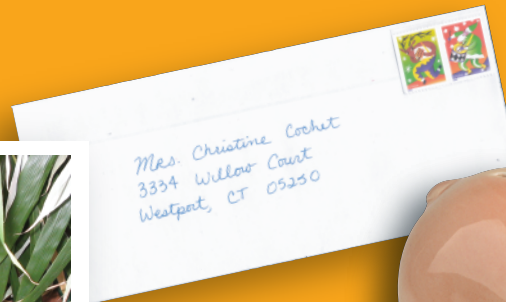 Mrs. Christine Cochet
3334 Willow Court
Westport, CT 05250